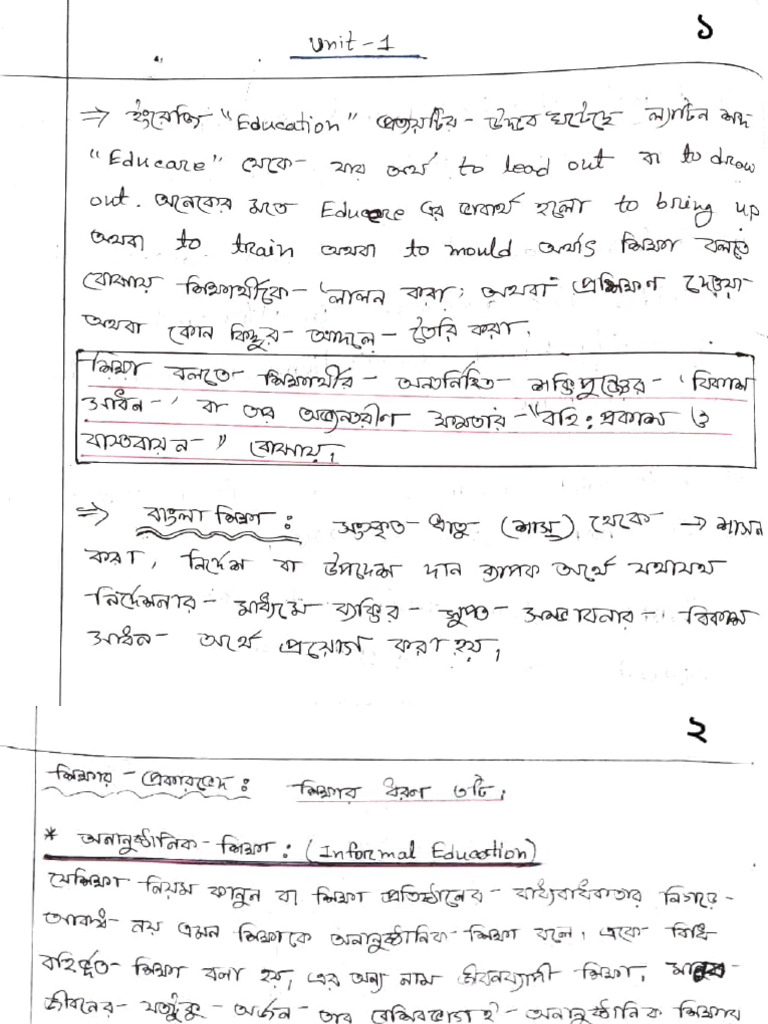 ১
Unit-1
⇒ ইংরেজি "Education" প্রত্যয়টির- উদ্ভব ঘটেছে ল্যাটিন শব্দ
"Educare" থেকে- যার অর্থ to lead out বা to draw
out. অনেকের মতে Educare এর ভাবার্থ হলো to bring up
অথবা to train অথবা to mould অর্থাৎ শিক্ষা বলতে
বোঝায় শিক্ষার্থীকে- 'লালন করা, অথবা প্রশিক্ষণ দেওয়া
অথবা কোন কিছুর- আদলে- তৈরি করা।
শিক্ষা বলতে- শিক্ষার্থীর- অন্তর্নিহিত- শক্তিপুঞ্জের- 'বিকাশ
সাধন-' বা তার অভ্যন্তরীণ ক্ষমতার- "বহিঃপ্রকাশ ও
বাস্তবায়ন-" বোঝায়।
⇒ বাংলা শিক্ষা: সংস্কৃত- ধাতু (শাস্) থেকে → শাসন
করা, নির্দেশ বা উপদেশ দান ব্যাপক অর্থে যথাযথ
নির্দেশনার- মাধ্যমে ব্যক্তির- সুপ্ত- সম্ভাবনার- বিকাশ
সাধন- অর্থে প্রয়োগ করা হয়।
২
শিক্ষার- প্রকারভেদ: শিক্ষার ধরণ ৩টি।
* অনানুষ্ঠানিক-শিক্ষা: (Informal Education)
যেশিক্ষা নিয়ম কানুন বা শিক্ষা প্রতিষ্ঠানের- বাধ্যবাধকতার নিগড়ে-
আবদ্ধ- নয় এমন শিক্ষাকে অনানুষ্ঠানিক-শিক্ষা বলে। একে বিধি
বহির্ভূত- শিক্ষা বলা হয়। এর অন্য নাম জীবনব্যাপী শিক্ষা। মানুষ-
জীবনের- যতটুকু- অর্জন- তার বেশিরভাগ ই- অনানুষ্ঠানিক শিক্ষার